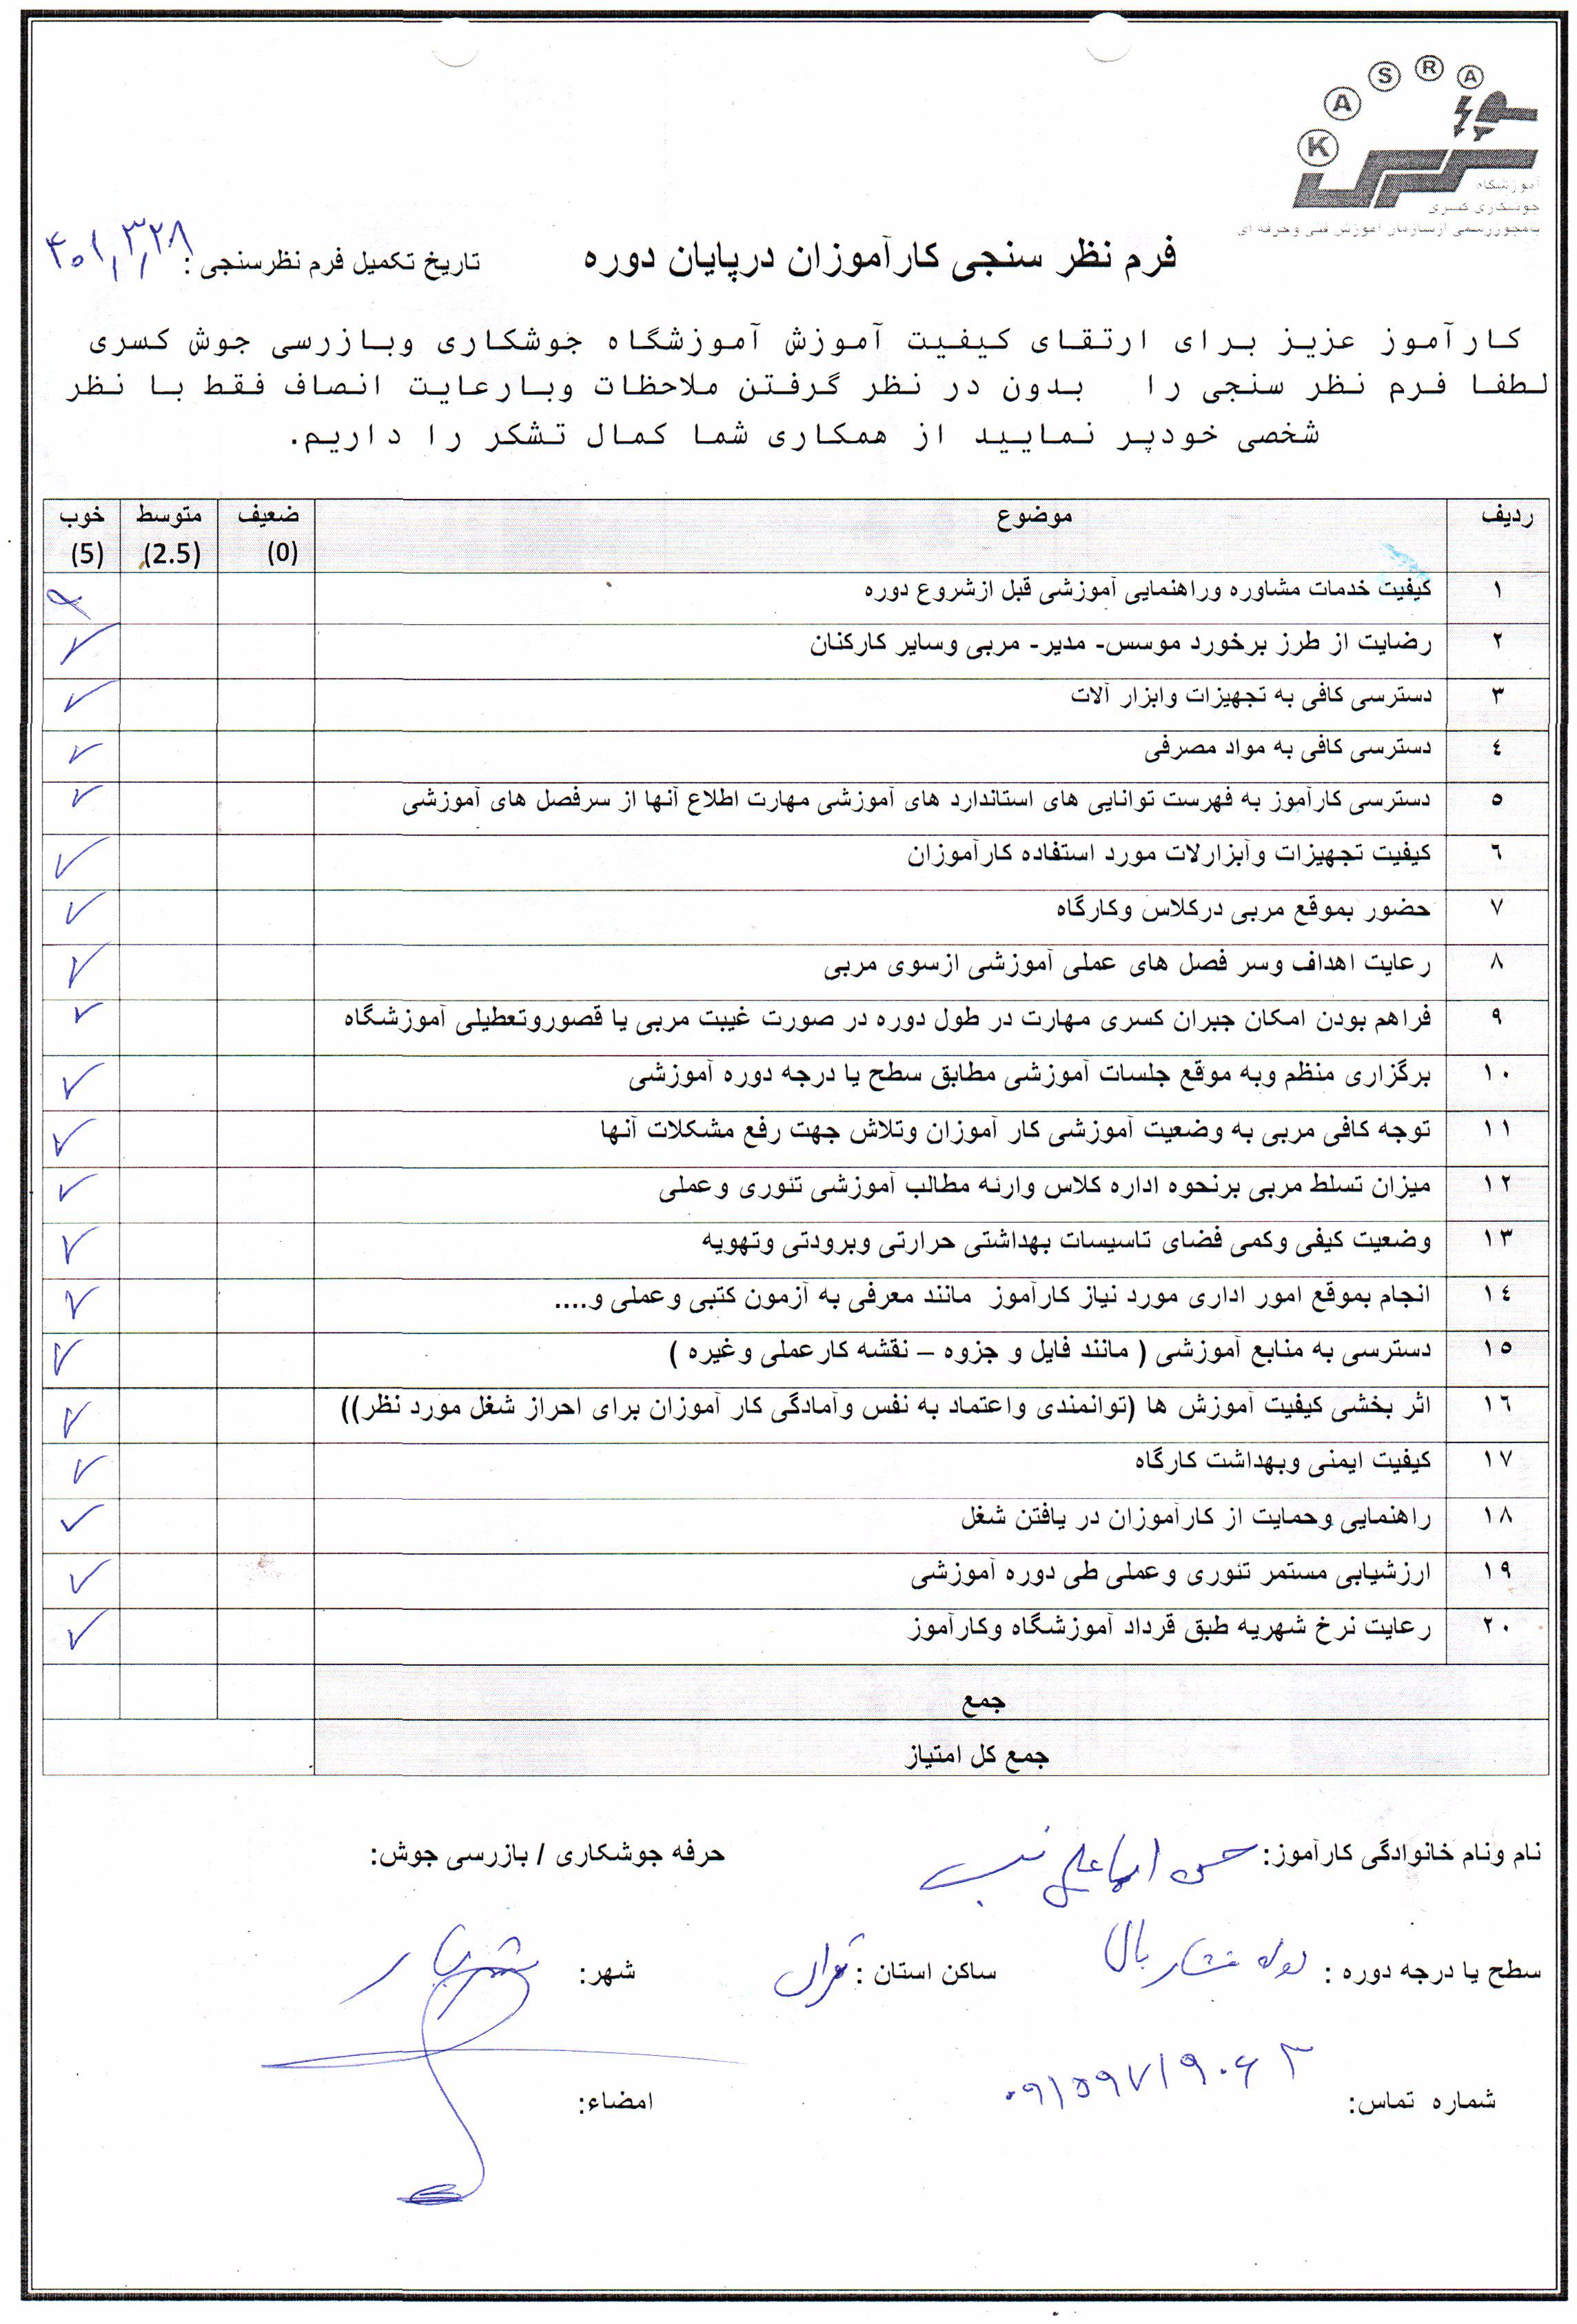 K A S R A
آموزشگاه
جوشکاری کسری
بامجوزرسمی ازسازمان آموزش فنی وحرفه ای
فرم نظر سنجی کارآموزان درپایان دوره
تاریخ تکمیل فرم نظرسنجی : ۴۰۱,۳,۲۸
کارآموز عزیز برای ارتقای کیفیت آموزش آموزشگاه جوشکاری وبازرسی جوش کسری
لطفا فرم نظر سنجی را بدون در نظر گرفتن ملاحظات وبارعایت انصاف فقط با نظر
شخصی خودپر نمایید از همکاری شما کمال تشکر را داریم.
ردیف موضوع ضعیف (0) متوسط (2.5) خوب (5)
١ کیفیت خدمات مشاوره وراهنمایی آموزشی قبل ازشروع دوره
٢ رضایت از طرز برخورد موسس- مدیر- مربی وسایر کارکنان ✓
٣ دسترسی کافی به تجهیزات وابزار آلات ✓
٤ دسترسی کافی به مواد مصرفی ✓
٥ دسترسی کارآموز به فهرست توانایی های استاندارد های آموزشی مهارت اطلاع آنها از سرفصل های آموزشی ✓
٦ کیفیت تجهیزات وآبزارلات مورد استفاده کارآموزان ✓
٧ حضور بموقع مربی درکلاس وکارگاه ✓
٨ رعایت اهداف وسر فصل های عملی آموزشی ازسوی مربی ✓
٩ فراهم بودن امکان جبران کسری مهارت در طول دوره در صورت غیبت مربی یا قصوروتعطیلی آموزشگاه ✓
١٠ برگزاری منظم وبه موقع جلسات آموزشی مطابق سطح یا درجه دوره آموزشی ✓
١١ توجه کافی مربی به وضعیت آموزشی کار آموزان وتلاش جهت رفع مشکلات آنها ✓
١٢ میزان تسلط مربی برنحوه اداره کلاس وارئه مطالب آموزشی تئوری وعملی ✓
١٣ وضعیت کیفی وکمی فضای تاسیسات بهداشتی حرارتی وبرودتی وتهویه ✓
١٤ انجام بموقع امور اداری مورد نیاز کارآموز مانند معرفی به آزمون کتبی وعملی و.... ✓
١٥ دسترسی به منابع آموزشی ( مانند فایل و جزوه – نقشه کارعملی وغیره ) ✓
١٦ اثر بخشی کیفیت آموزش ها (توانمندی واعتماد به نفس وآمادگی کار آموزان برای احراز شغل مورد نظر)) ✓
١٧ کیفیت ایمنی وبهداشت کارگاه ✓
١٨ راهنمایی وحمایت از کارآموزان در یافتن شغل ✓
١٩ ارزشیابی مستمر تئوری وعملی طی دوره آموزشی ✓
٢٠ رعایت نرخ شهریه طبق قرداد آموزشگاه وکارآموز ✓
جمع
جمع کل امتیاز
نام ونام خانوادگی کارآموز: حسن اسماعیلی نسب حرفه جوشکاری / بازرسی جوش:
سطح یا درجه دوره : لوله فشار بالا ساکن استان : تهران شهر: شهریار
شماره تماس: ۰۹۱۵۹۷۱۹۰۶۳ امضاء: